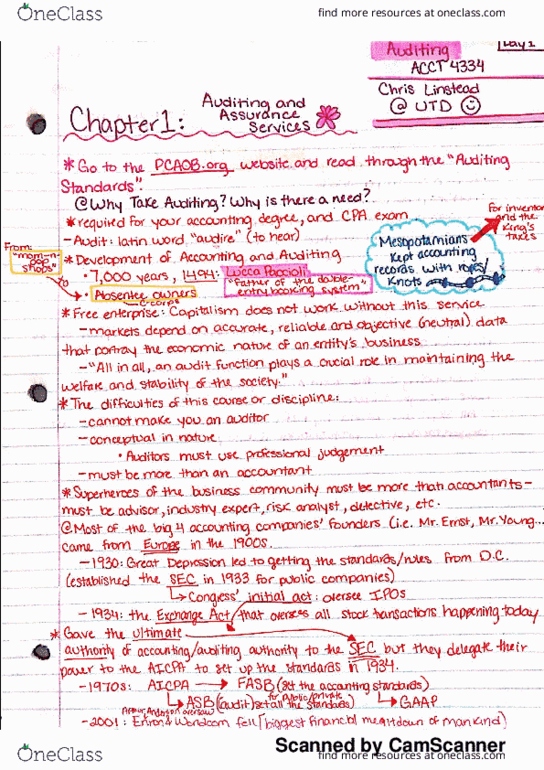 OneClass
find more resources at oneclass.com
Auditing
Day 1
ACCT 4334
Chris Linstead
@ UTD
Chapter 1: Auditing and Assurance Services
* Go to the PCAOB.org website and read through the "Auditing
Standards".
@ Why Take Auditing? Why is there a need?
* required for your accounting degree, and CPA exam
- Audit: latin word "audire" (to hear)
for inventory and the King's taxes
Mesopotamians Kept accounting records with ropes/ Knots
From: "mom-n-pop shops"
to
* Development of Accounting and Auditing
• 7,000 years, 1494: Lucca Paccioli
"Father of the double-entry booking system"
Absentee owners
C-corps
* Free enterprise: Capitalism does not work without this service
- markets depend on accurate, reliable and objective (neutral) data
that portray the economic nature of an entity's business
- "All in all, an audit function plays a crucial role in maintaining the
welfare and stability of the society."
* The difficulties of this course or discipline:
- cannot make you an auditor
- conceptual in nature
• Auditors must use professional judgement
- must be more than an accountant
* Superheroes of the business community must be more than accountants-
must be advisor, industry expert, risk analyst, detective, etc.
@ Most of the big 4 accounting companies' founders (i.e. Mr. Ernst, Mr. Young...
came from Europe in the 1900s.
- 1930: Great Depression led to getting the standards/rules from D.C.
(established the SEC in 1933 for public companies)
Congress' initial act: oversee IPOs
- 1934: the Exchange Act that oversees all stock transactions happening today
* Gave the ultimate
authority of accounting/auditing authority to the SEC but they delegate their
power to the AICPA to set up the standards in 1934.
- 1970s: AICPA → FASB (set the accounting standards)
for public/private
ASB (audit) set all the standards) GAAP
Arthur Anderson oversaw
- 2001: Enron & Worldcom fell [biggest financial meltdown of mankind)
Scanned by CamScanner
OneClass
find more resources at oneclass.com